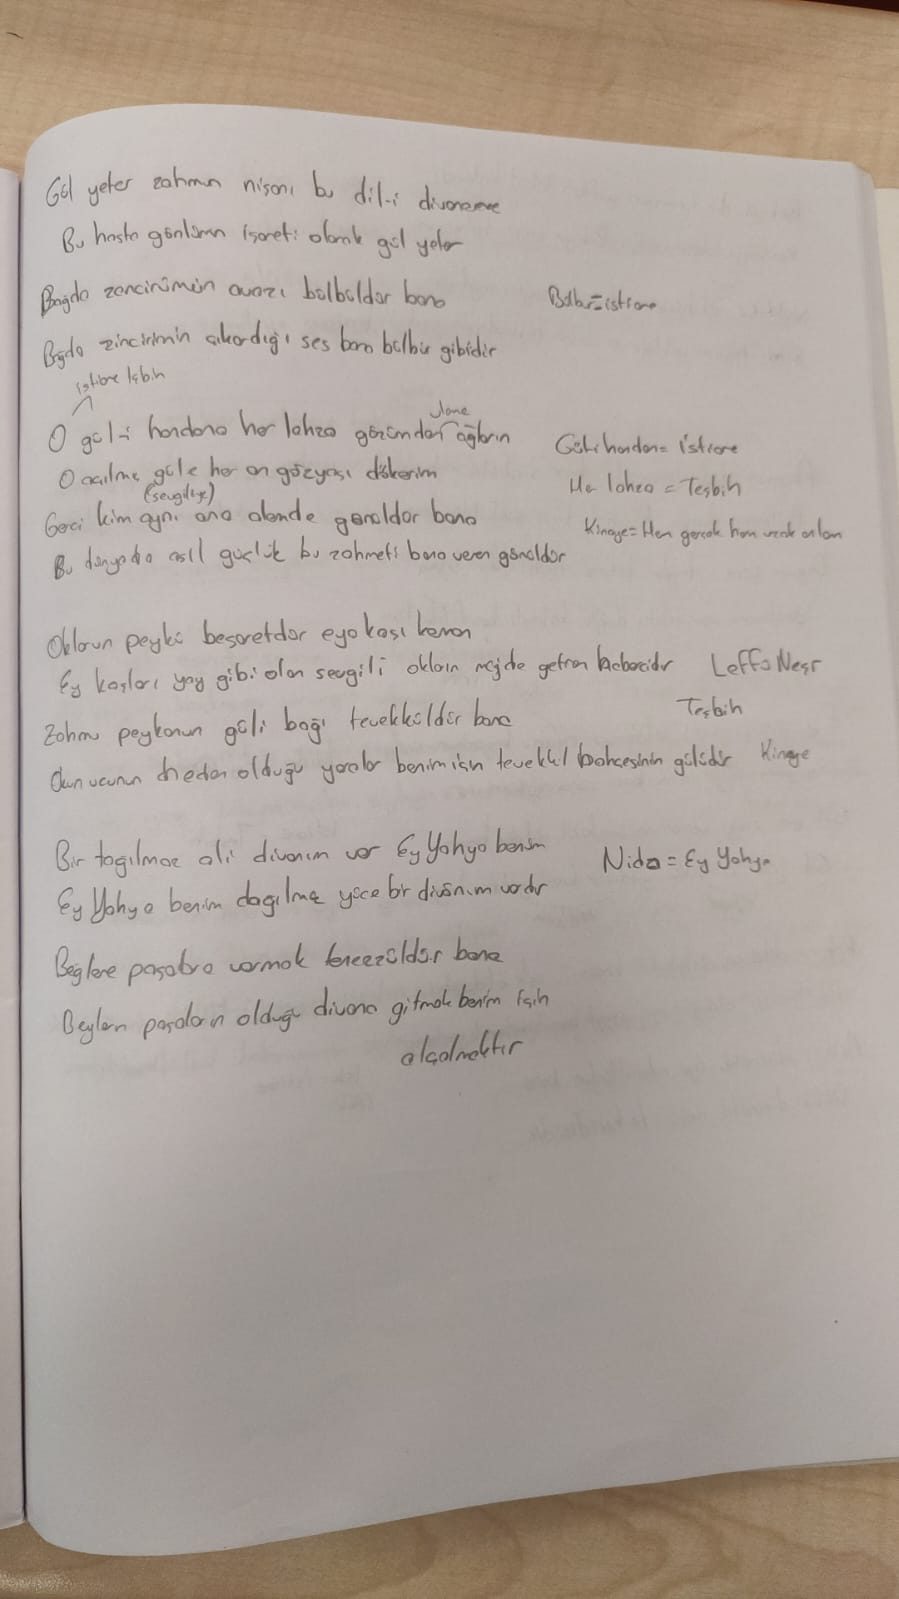 Gül yeter zahmın nişanı bu dil-i divaneme
Bu hasta gönlümün işareti olarak gül yeter
Bağda zencirümün avazı bülbüldür bana Bülbül=istiare
Bağda zincirimin çıkardığı ses bana bülbül gibidir
istiare teşbih
O gül-i handana her lahza gözümden jale ağların Gül-i handan= istiare
O açılmış güle her an gözyaşı dökerim Her lahza = Teşbih
(sevgiliye)
Gerçi kim aynı ana alemde gönüldür bana Kinaye= Hem gerçek hem uzak anlam
Bu dünyada asıl güçlük bu zahmeti bana veren gönüldür
Oklarun peyki beşaretdür eya kaşı keman
Ey kaşları yay gibi olan sevgili okların müjde getiren habercidir Leff ü Neşr
Teşbih
Zahmı peykanun güli bağı tevekküldür bana
Okun ucunun neden olduğu yaralar benim için tevekkül bahçesinin gülüdür Kinaye
Bir tağılmaz ali divanım var Ey Yahya benim Nida = Ey Yahya
Ey Yahya benim dağılmaz yüce bir divanım vardır
Beğlere paşalara varmak tenezzüldür bana
Beylerin paşaların olduğu divana gitmek benim için
alçalmaktır